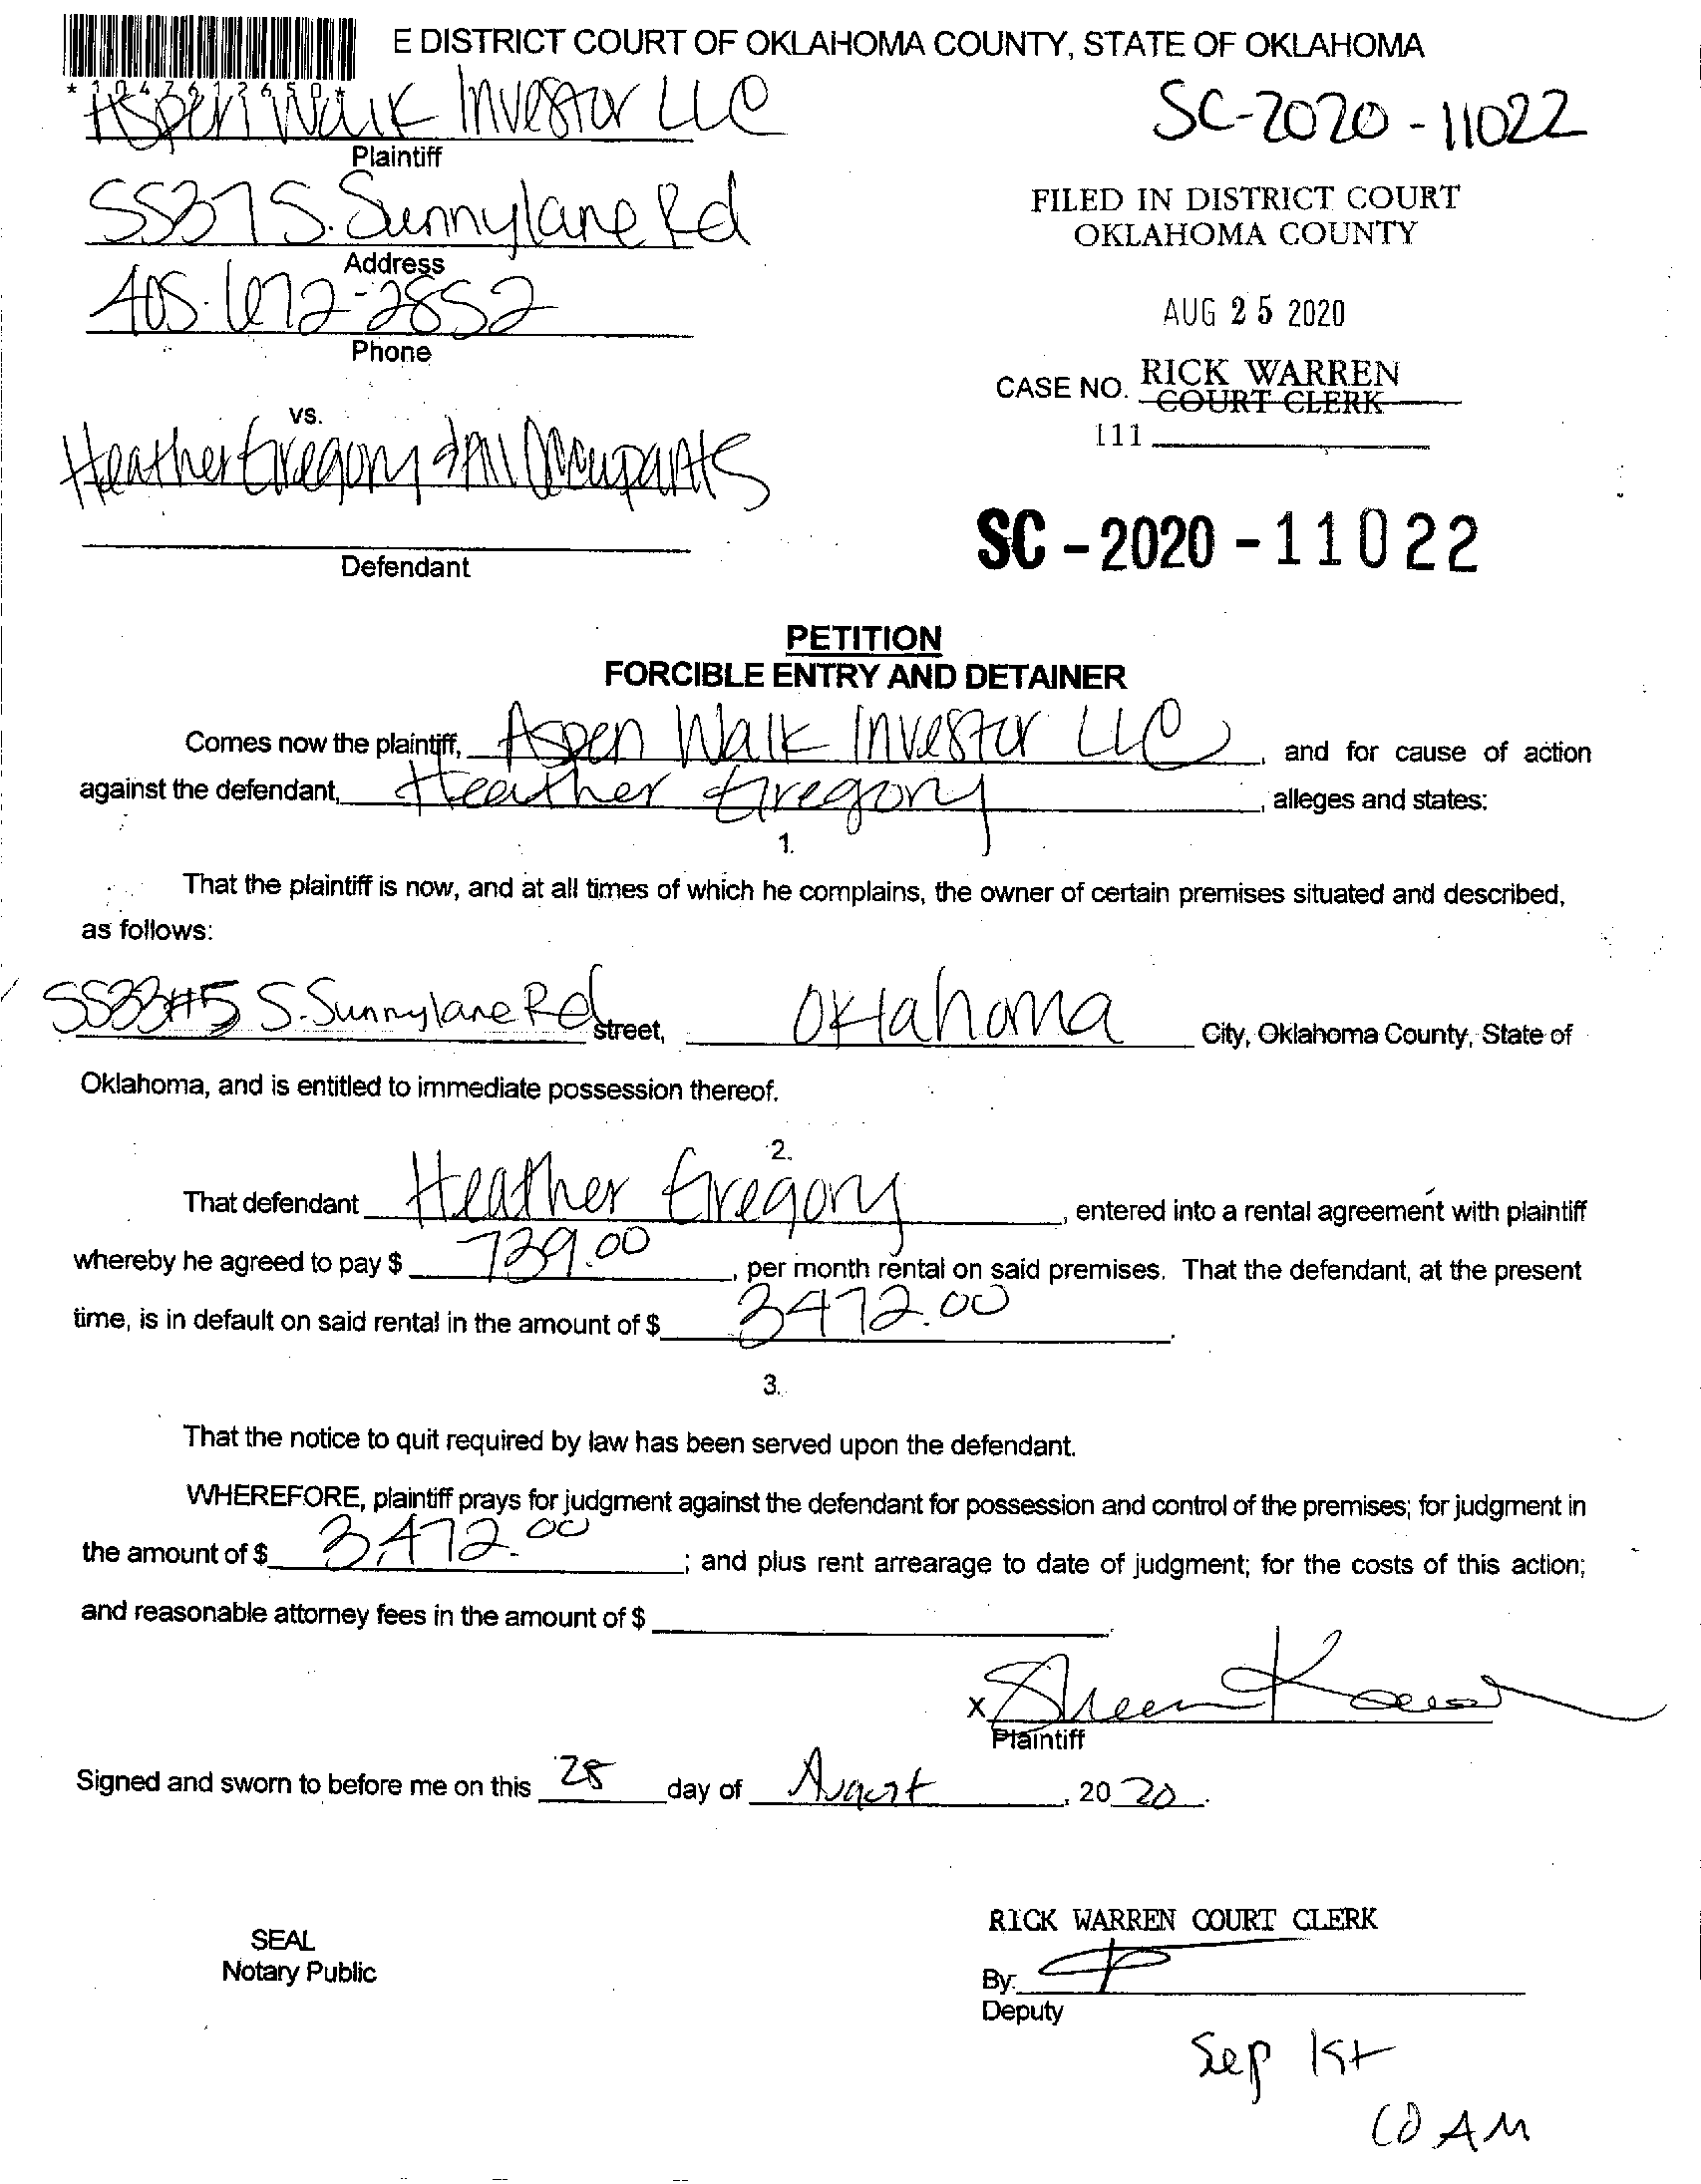 E DISTRICT COURT OF OKLAHOMA COUNTY, STATE OF OKLAHOMA
* 1 0 4 7 6 1 2 6 5 0 *
Aspen Walk Investor LLC
SC-2020-11022
Plaintiff
5537 S. Sunnylane Rd
FILED IN DISTRICT COURT
OKLAHOMA COUNTY
Address
405-672-2852
AUG 25 2020
Phone
CASE NO. RICK WARREN
COURT CLERK
vs.
111
Heather Gregory & All Occupants
SC - 2020 - 11022
Defendant
PETITION
FORCIBLE ENTRY AND DETAINER
Comes now the plaintiff, Aspen Walk Investor LLC, and for cause of action
against the defendant, Heather Gregory, alleges and states:
1.
That the plaintiff is now, and at all times of which he complains, the owner of certain premises situated and described,
as follows:
5533#5 S. Sunnylane Rd street, Oklahoma City, Oklahoma County, State of
Oklahoma, and is entitled to immediate possession thereof.
2.
That defendant Heather Gregory, entered into a rental agreement with plaintiff
whereby he agreed to pay $ 739.00, per month rental on said premises. That the defendant, at the present
time, is in default on said rental in the amount of $ 3472.00.
3.
That the notice to quit required by law has been served upon the defendant.
WHEREFORE, plaintiff prays for judgment against the defendant for possession and control of the premises; for judgment in
the amount of $ 3,472.00; and plus rent arrearage to date of judgment; for the costs of this action;
and reasonable attorney fees in the amount of $
X
Plaintiff
Signed and sworn to before me on this 25 day of August, 20 20.
RICK WARREN COURT CLERK
SEAL
Notary Public
By:
Deputy
Sep 1st
10 AM